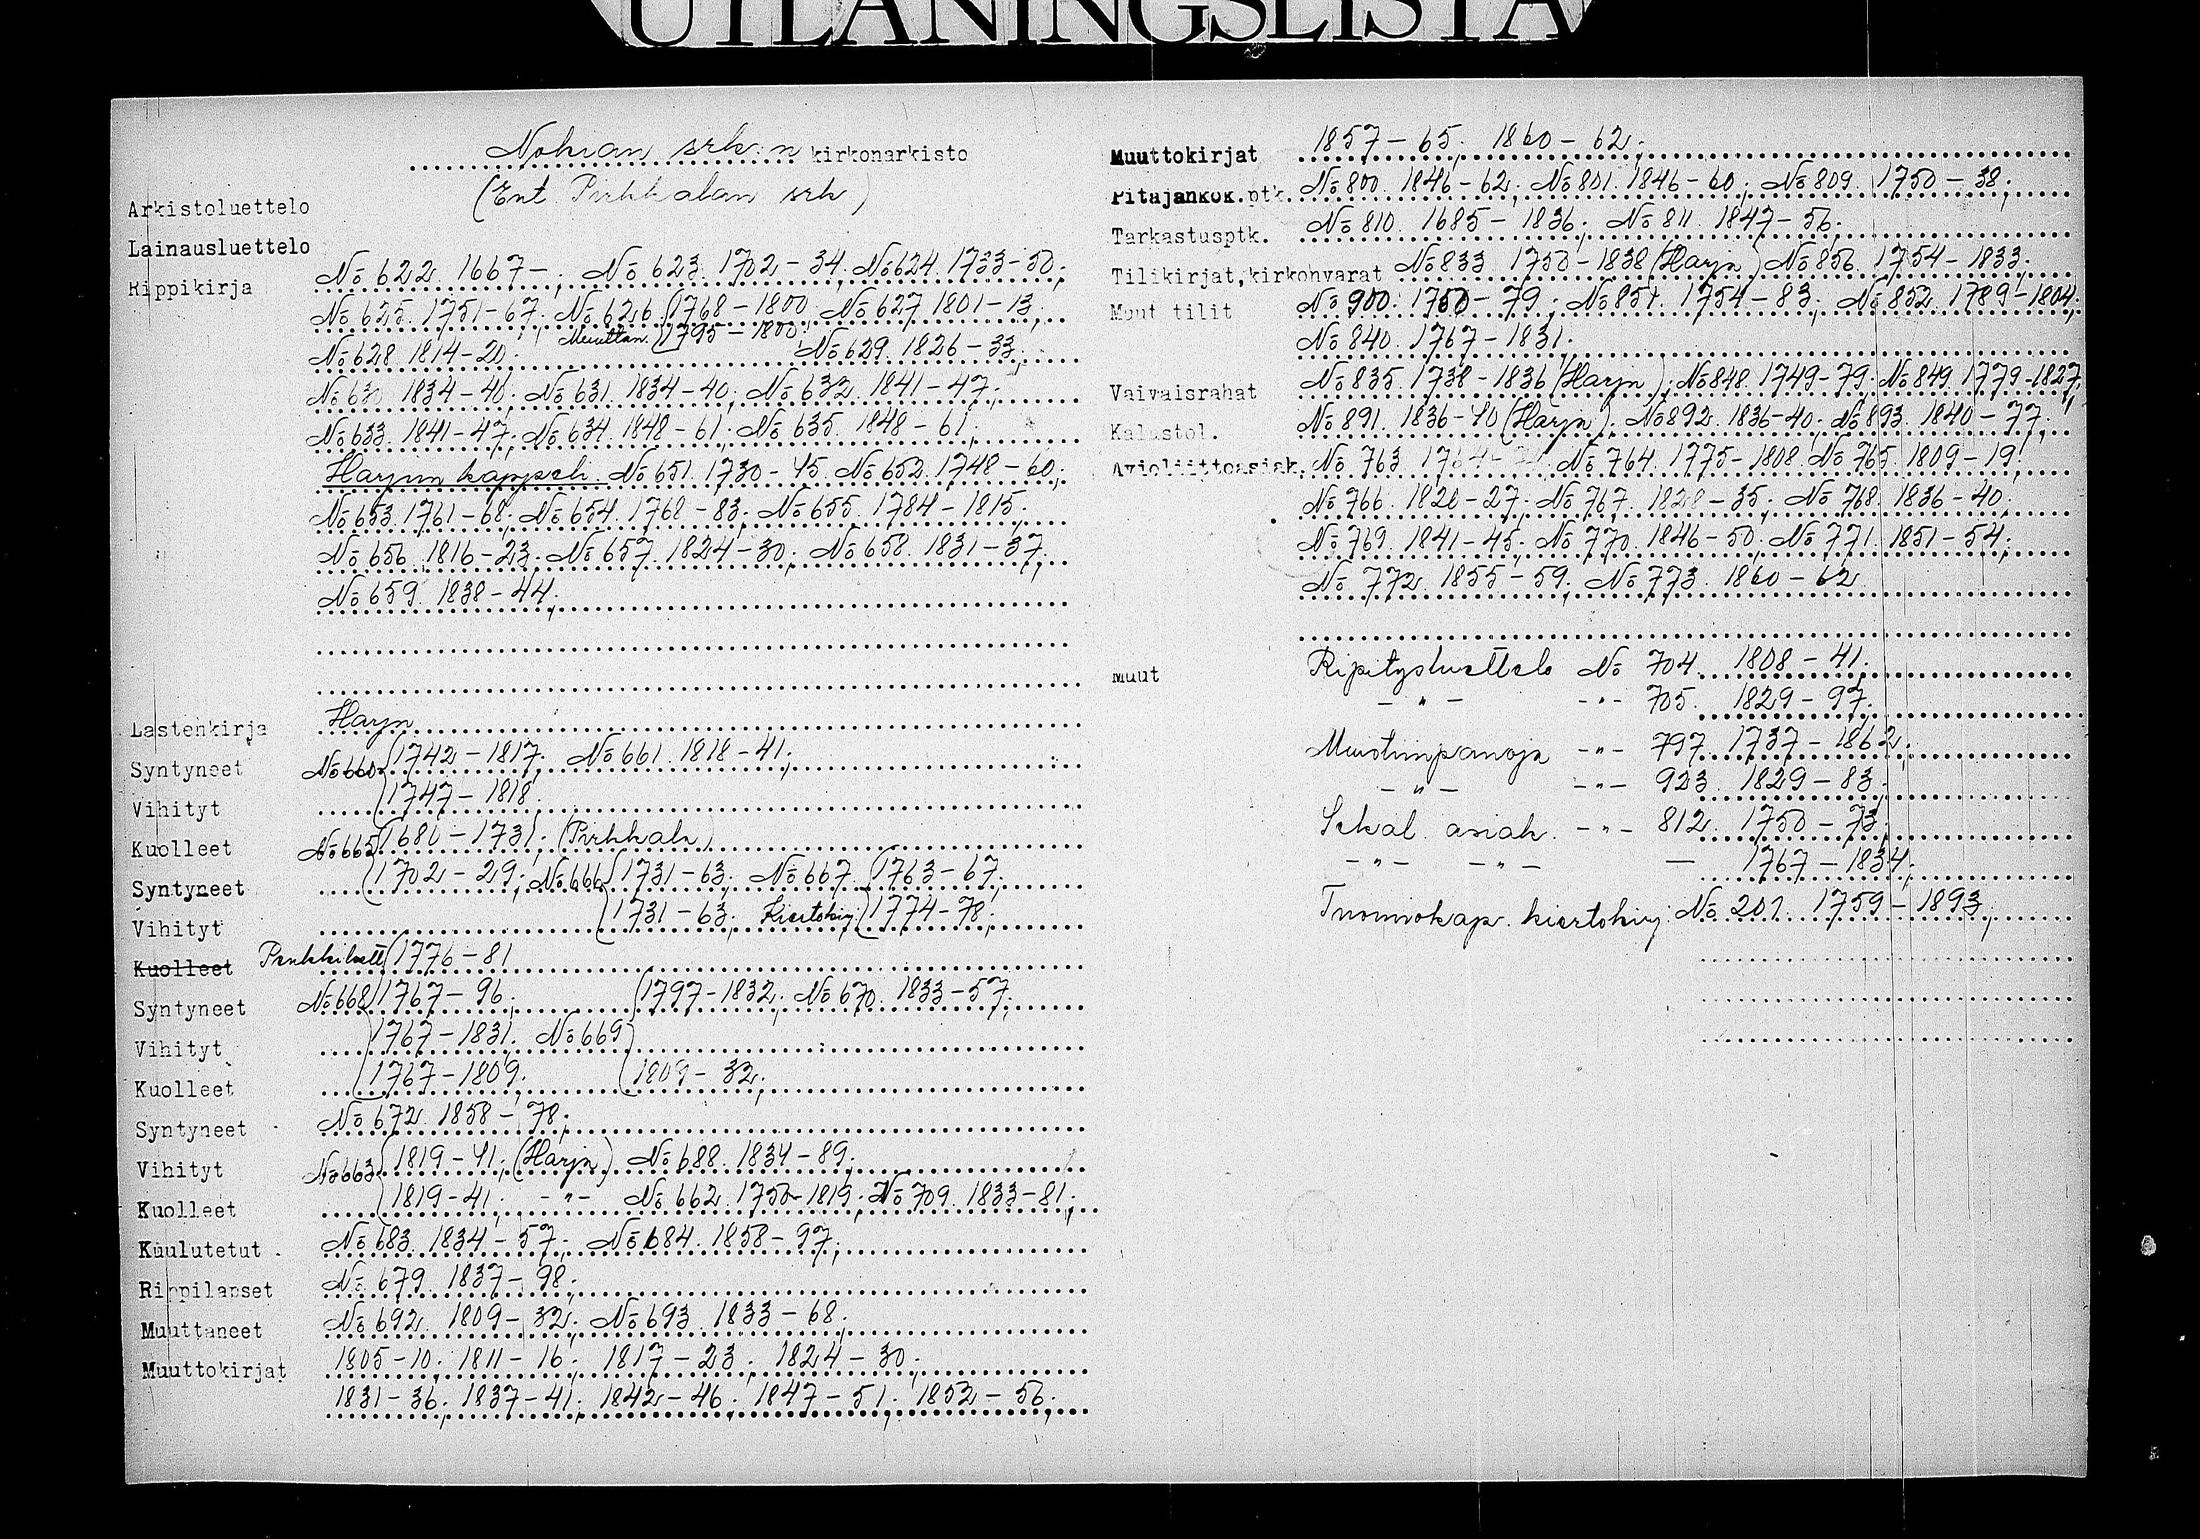 UTLÅNINGSLISTA
Nokian srk:n kirkonarkisto
(Ent. Pirkkalan srk)
Arkistoluettelo
Lainausluettelo
Rippikirja No 622. 1667- ; No 623. 1702-34; No 624. 1733-50;
No 625. 1751-67; No 626. (1768-1800; No 627. 1801-13;
Muuttan. (1795-1800;
No 628. 1814-20; No 629. 1826-33;
No 630 1834-40; No 631. 1834-40; No 632. 1841-47;
No 633. 1841-47; No 634. 1848-61; No 635. 1848-61;
Harjun kappeli. No 651. 1730-45. No 652. 1748-60;
No 653. 1761-68; No 654. 1768-83; No 655. 1784-1815;
No 656. 1816-23; No 657. 1824-30; No 658. 1831-37;
No 659. 1838-44;
Lastenkirja Harju
Syntyneet No 660 (1742-1817; No 661. 1818-41;
Vihityt (1747-1818
Kuolleet No 665 (1680-1731; (Pirkkala)
Syntyneet (1702-29; No 666 (1731-63; No 667. (1763-67;
Vihityt (1731-63; Kiertokirj. (1774-78;
Kuolleet Penkkiluett (1776-81
Syntyneet No 668 (1767-96; (1797-1832; No 670. 1833-57;
Vihityt (1767-1831; No 669
Kuolleet (1767-1809; (1809-32;
Syntyneet No 672. 1858-78;
Vihityt No 663 (1819-41; (Harju) No 688. 1834-89;
Kuolleet (1819-41; -"- No 662. 1750-1819; No 709. 1833-81;
Kuulutetut No 683. 1834-57; No 684. 1858-97;
Rippilapset No 679. 1837-98;
Muuttaneet No 692. 1809-32; No 693. 1833-68;
Muuttokirjat 1805-10; 1811-16; 1817-23; 1824-30;
1831-36; 1837-41; 1842-46; 1847-51; 1852-56;
Muuttokirjat 1857-65; 1860-62;
Pitäjänkok.ptk. No 800. 1846-62; No 801. 1846-60; No 809. 1750-38;
Tarkastusptk. No 810. 1685-1836; No 811. 1847-56;
Tilikirjat,kirkonvarat No 833. 1750-1838 (Harju) No 856. 1754-1833;
Muut tilit No 900. 1760-79; No 851. 1754-83; No 852. 1789-1804;
No 840. 1767-1831;
Vaivaisrahat No 835. 1738-1836 (Harju); No 848. 1749-79; No 849. 1779-1827;
Kalustol. No 891. 1836-40 (Harju); No 892. 1836-40; No 893. 1840-77;
Avioliittoasiak. No 763. No 764. 1775-1808. No 765. 1809-19;
No 766. 1820-27; No 767. 1828-35; No 768. 1836-40;
No 769. 1841-45; No 770. 1846-50; No 771. 1851-54;
No 772. 1855-59; No 773. 1860-62
Muut Ripitysluettelo No 704. 1808-41;
-"- -"- 705. 1829-97;
Muistiinpanoja -"- 797. 1737-1862;
-"- -"- 923 1829-83;
Sekal. asiak. -"- 812. 1750-73;
-"- -"- — 1767-1834;
Tuomiokap. kiertokirj. No 201. 1759-1893;